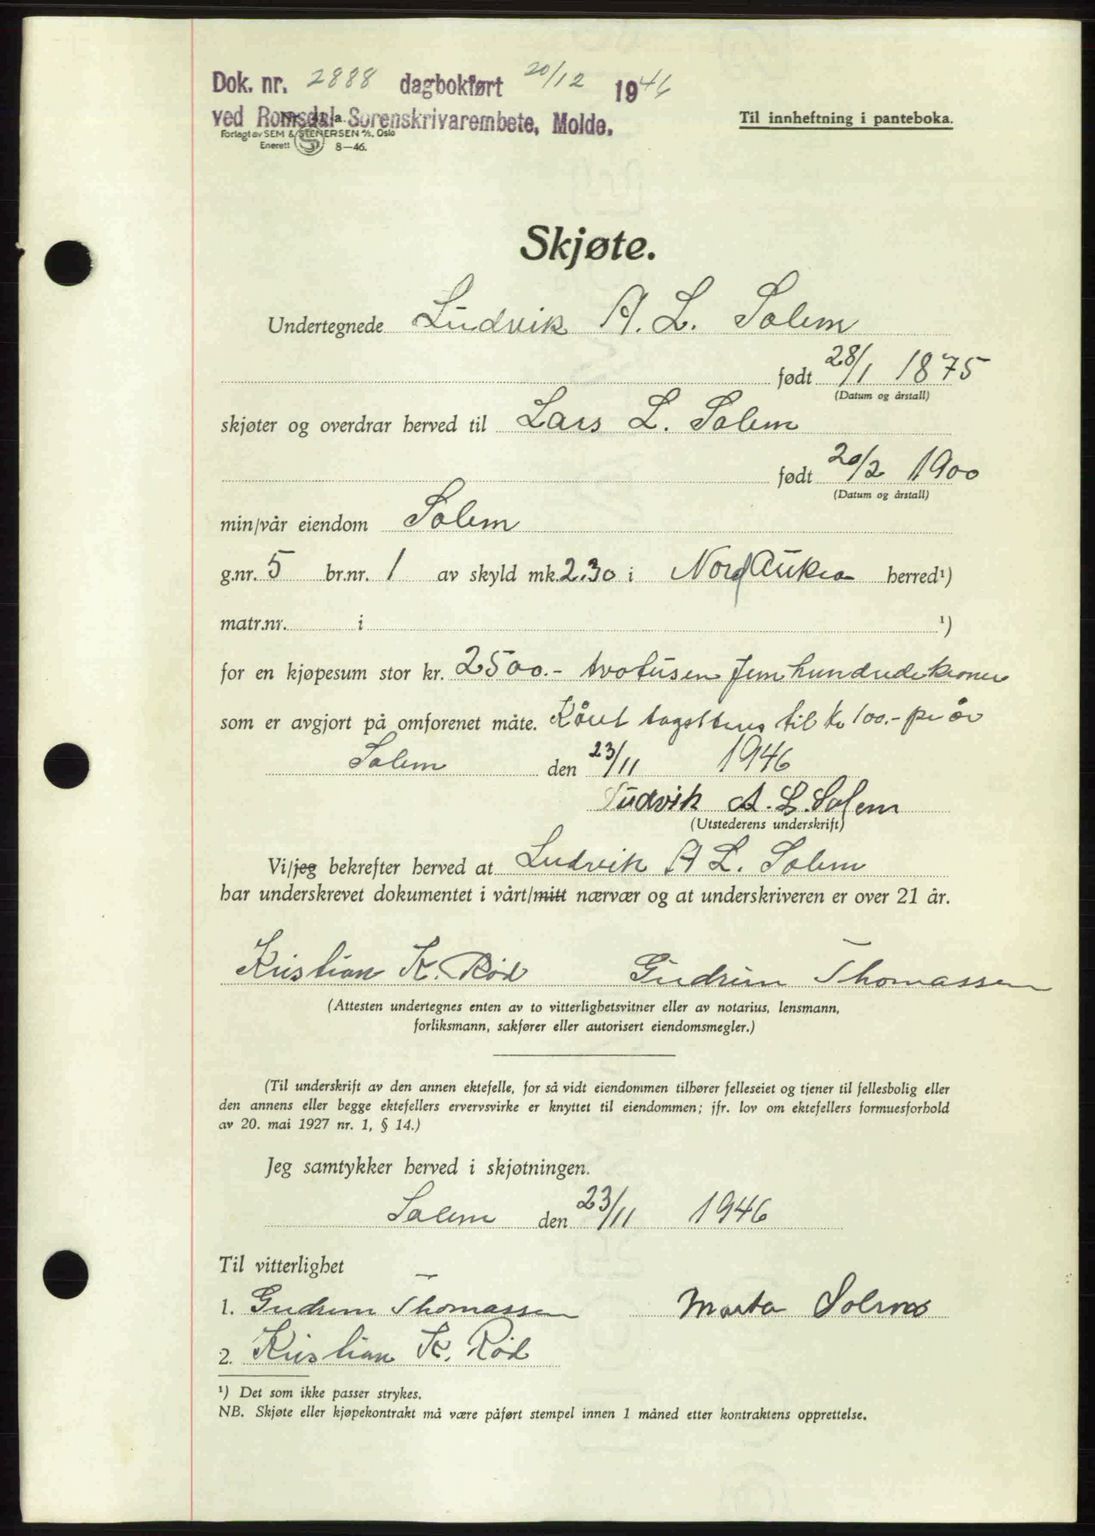 Dok. nr. 2888 dagbokført 20/12 1946
ved Romsdal Sorenskrivarembete, Molde.
Forlagt av SEM & STENERSEN A/S, Oslo
Enerett 8—46.
Til innheftning i panteboka.
Skjøte.
Undertegnede Ludvik A. L. Solem
født 28/1 1875
(Datum og årstall)
skjøter og overdrar herved til Lars L. Solem
født 20/2 1900
(Datum og årstall)
min/vår eiendom Solem
g.nr. 5 br.nr. 1 av skyld mk. 2.30 i Nord Aukra herred¹)
matr.nr. i ¹)
for en kjøpesum stor kr. 2500.- tvotusen fem hundrede kroner
som er avgjort på omforenet måte. Kåret tagsteres til kr 100.- pr år
Solem den 23/11 1946
Ludvik A. L. Solem
(Utstederens underskrift)
Vi/jeg bekrefter herved at Ludvik A L. Solem
har underskrevet dokumentet i vårt/mitt nærvær og at underskriveren er over 21 år.
Kristian K. Rød Gudrun Thomassen
(Attesten undertegnes enten av to vitterlighetsvitner eller av notarius, lensmann,
forliksmann, sakfører eller autorisert eiendomsmegler.)
(Til underskrift av den annen ektefelle, for så vidt eiendommen tilhører felleseiet og tjener til fellesbolig eller
den annens eller begge ektefellers ervervsvirke er knyttet til eiendommen; jfr. lov om ektefellers formuesforhold
av 20. mai 1927 nr. 1, § 14.)
Jeg samtykker herved i skjøtningen.
Solem den 23/11 1946
Til vitterlighet
1. Gudrun Thomassen Marta
2. Kristian K. Rød
¹) Det som ikke passer strykes.
NB. Skjøte eller kjøpekontrakt må være påført stempel innen 1 måned etter kontraktens opprettelse.